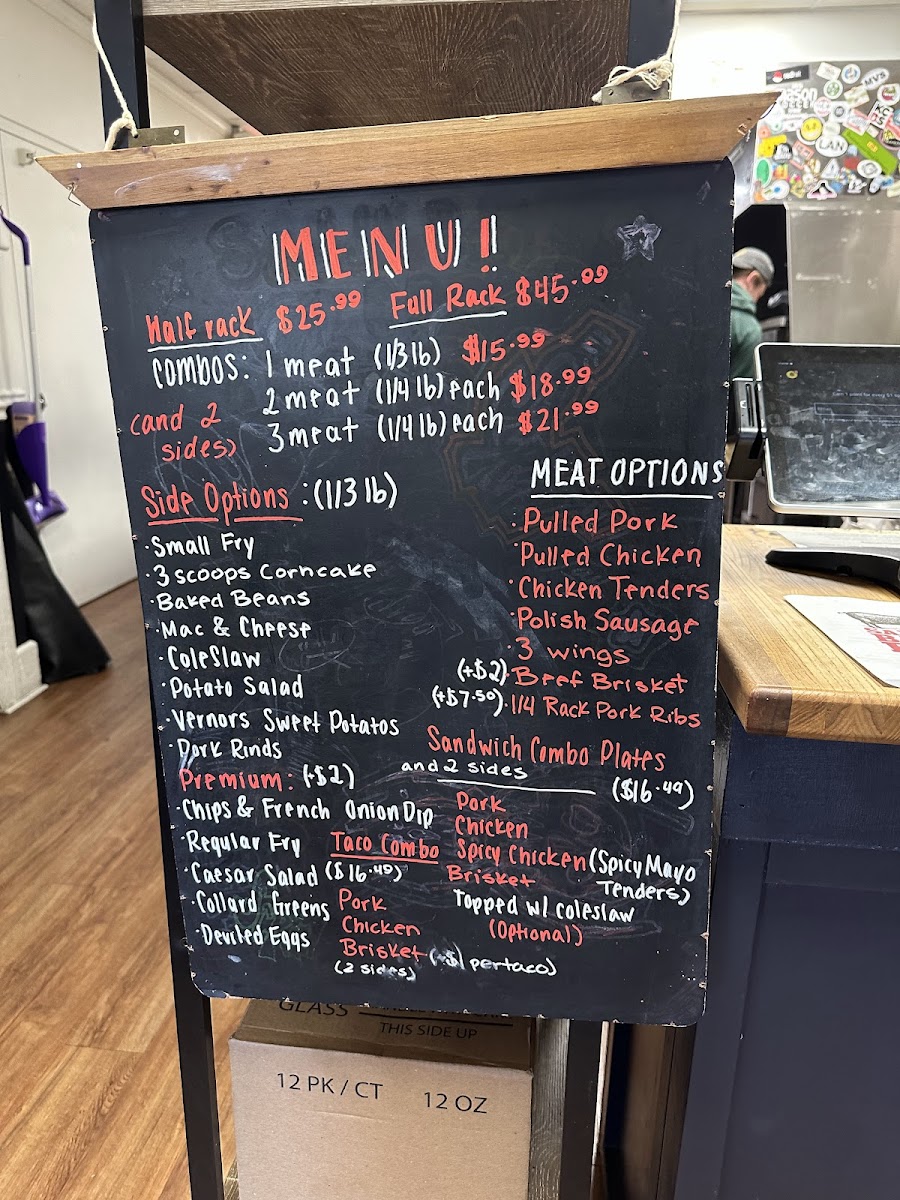 MENU!
Half rack $25.99 Full Rack $45.99
COMBOS: 1 meat (1/3 lb) $15.99
2 meat (1/4 lb) each $18.99
3 meat (1/4 lb) each $21.99
(and 2
sides)
Side Options : (1/3 lb)
· Small Fry
· 3 scoops Corncake
· Baked Beans
· Mac & Cheese
· Coleslaw
· Potato Salad
· Vernors Sweet Potatos
· Pork Rinds
Premium: (+$2)
· Chips & French Onion Dip
· Regular Fry
· Caesar Salad
· Collard Greens
· Deviled Eggs
MEAT OPTIONS
· Pulled Pork
· Pulled Chicken
· Chicken Tenders
· Polish Sausage
· 3 wings
(+$2) · Beef Brisket
(+$7.50) · 1/4 Rack Pork Ribs
Sandwich Combo Plates
and 2 sides
($16.49)
Pork
Chicken
Spicy Chicken (Spicy Mayo
Tenders)
Brisket
Topped w/ coleslaw
(Optional)
Taco Combo
($16.49)
Pork
Chicken
Brisket (+$1 per taco)
(2 sides)
GLASS
THIS SIDE UP
12 PK / CT 12 OZ